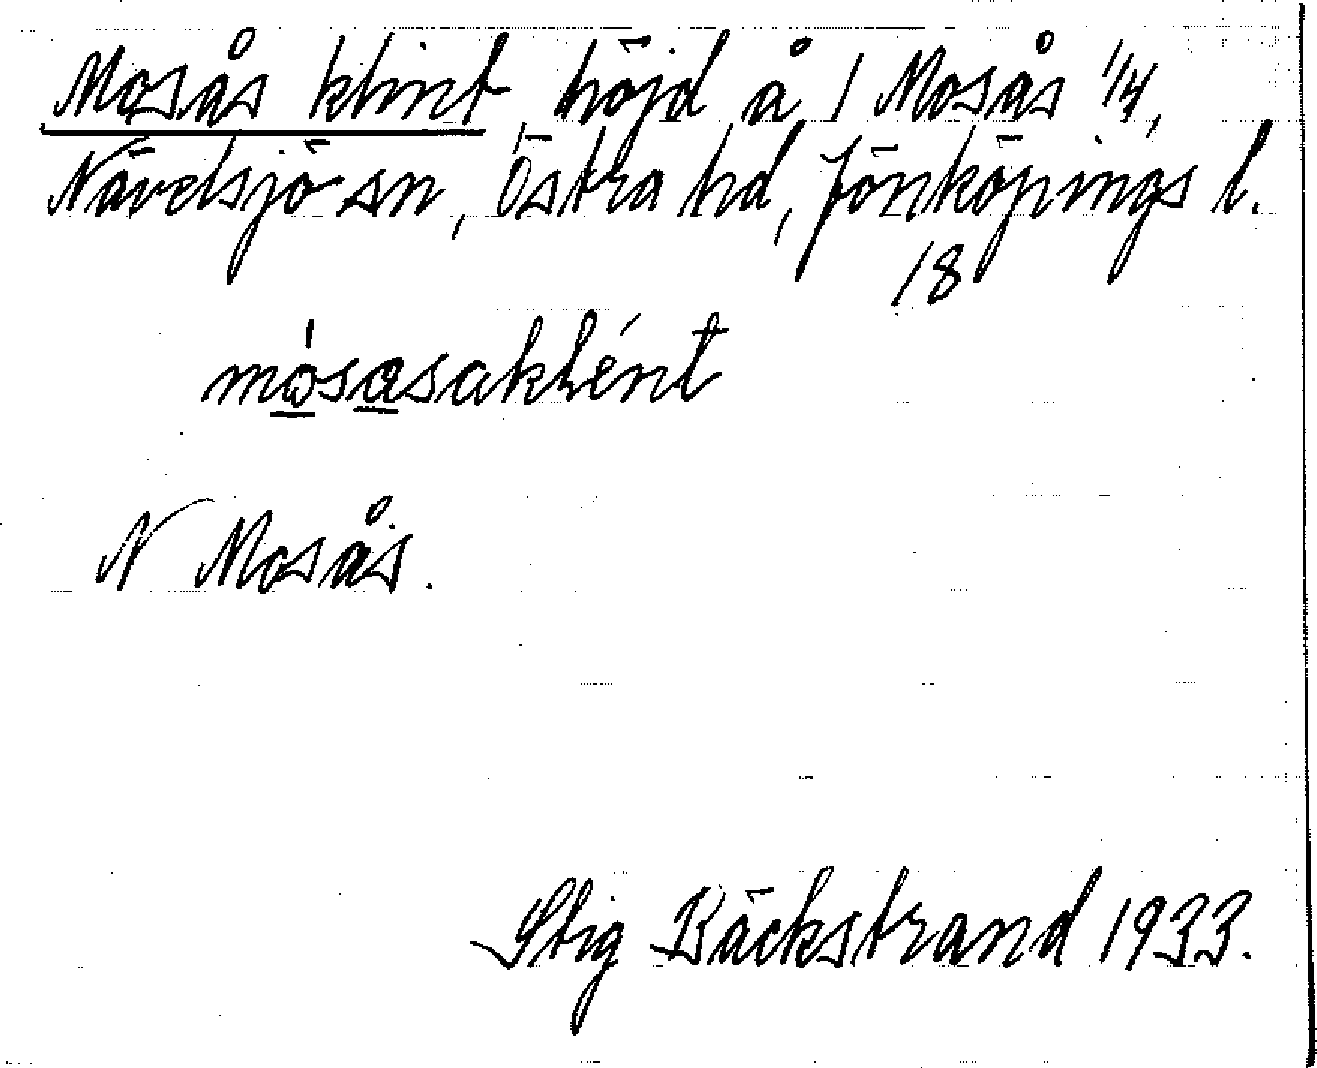 Mosås klint höjd å 1 Mosås 1/4,
Nävelsjö sn, Östra hd, Jönköpings l.
18
mósasaklént
N Mosås.
Stig Bäckstrand 1933.